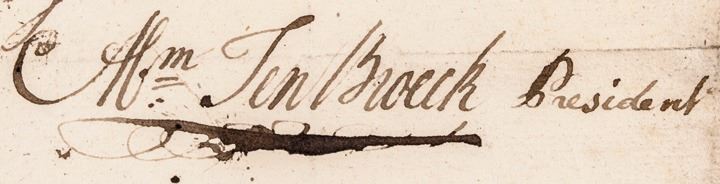 Abm Ten Broeck President